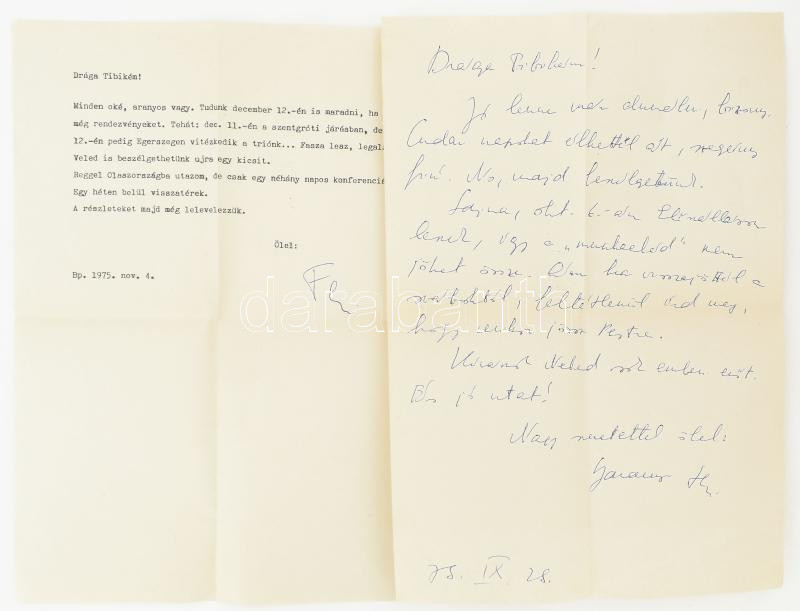 Drága Tibikém!
Minden oké, aranyos vagy. Tudunk december 12.-én is maradni, ha
még rendezvényeket. Tehát: dec. 11.-én a szentgróti járásban, de
12.-én pedig Egerszegen vitézkedik a triónk... Fasza lesz, legal
Veled is beszélgethetünk ujra egy kicsit.
Reggel Olaszországba utazom, de csak egy néhány napos konferenci
Egy héten belül visszatérek.
A részleteket majd még lelevelezzük.
Ölel:
Bp. 1975. nov. 4.
Drága Tibikém!
Jó lenne már dumálni, bizony.
Cudar napokat élhettél át, szegény
fiú. No, majd beszélgetünk.
Sajna, okt. 6.-án
leszek, így a „munkaebéd" nem
jöhet össze. Ám ha visszajöttél a
feltétlenül írd meg,
hogy mikor jössz Pestre.
Kívánok Neked sok emberi erőt.
És jó utat!
Nagy szeretettel ölel:
75. IX 28.
darabanth